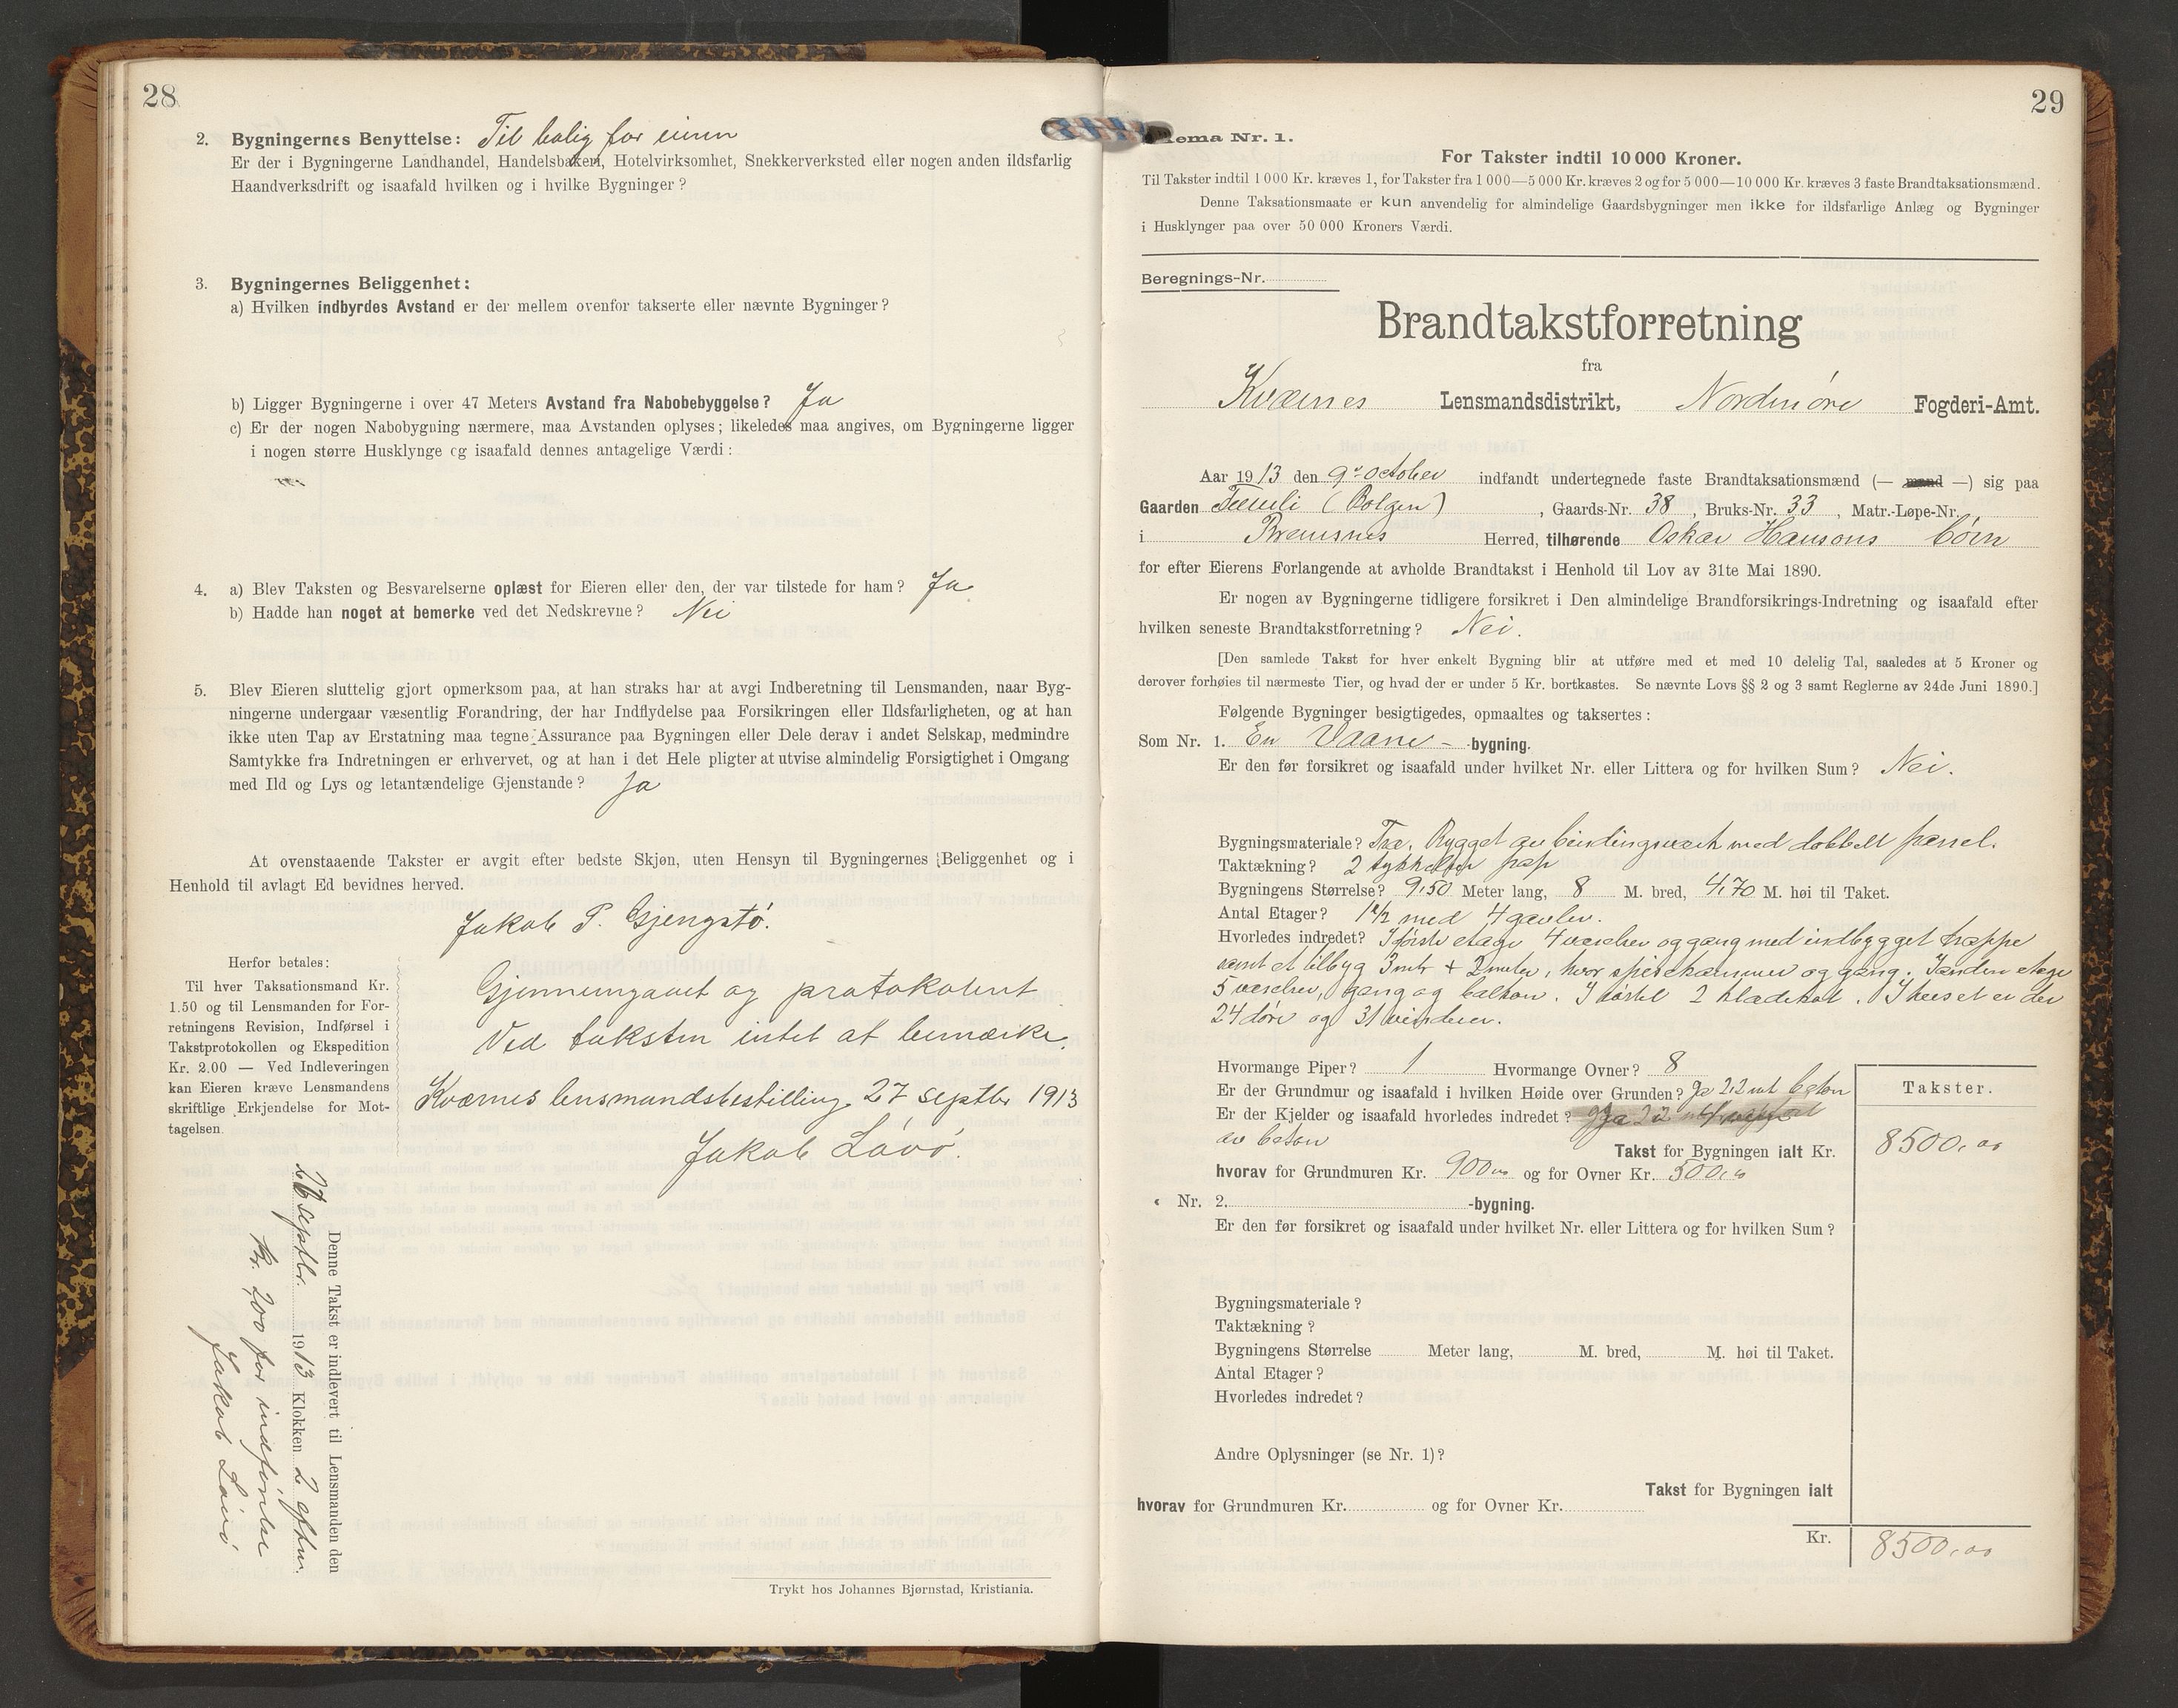 28
2. Bygningernes Benyttelse: Til bolig for
Er der i Bygningerne Landhandel, Handelsbakeri, Hotelvirksomhet, Snekkerverksted eller nogen anden ildsfarlig
Haandverksdrift og isaafald hvilken og i hvilke Bygninger?
3. Bygningernes Beliggenhet:
a) Hvilken indbyrdes Avstand er der mellem ovenfor takserte eller nævnte Bygninger?
b) Ligger Bygningerne i over 47 Meters Avstand fra Nabobebyggelse? Ja
c) Er der nogen Nabobygning nærmere, maa Avstanden oplyses; likeledes maa angives, om Bygningerne ligger
i nogen større Husklynge og isaafald dennes antagelige Værdi:
4. a) Blev Taksten og Besvarelserne oplæst for Eieren eller den, der var tilstede for ham? Ja
b) Hadde han noget at bemerke ved det Nedskrevne? Nei
5. Blev Eieren sluttelig gjort opmerksom paa, at han straks har at avgi Indberetning til Lensmanden, naar Byg-
ningerne undergaar væsentlig Forandring, der har Indflydelse paa Forsikringen eller Ildsfarligheten, og at han
ikke uten Tap av Erstatning maa tegne Assurance paa Bygningen eller Dele derav i andet Selskap, medmindre
Samtykke fra Indretningen er erhvervet, og at han i det Hele pligter at utvise almindelig Forsigtighet i Omgang
med Ild og Lys og letantændelige Gjenstande? Ja
At ovenstaaende Takster er avgit efter bedste Skjøn, uten Hensyn til Bygningernes Beliggenhet og i
Henhold til avlagt Ed bevidnes herved.
Jakob P. Gjengstø.
Herfor betales:
Til hver Taksationsmand Kr.
1.50 og til Lensmanden for For-
retningens Revision, Indførsel i
Takstprotokollen og Ekspedition
Kr. 2.00 — Ved Indleveringen
kan Eieren kræve Lensmandens
skriftlige Erkjendelse for Mot-
tagelsen
Gjennemgaaet og protokolert
Ved taksten intet at bemærke.
Kværnes lensmandsbestilling 27 septbr 1913
Jakob Løvø.
Denne Takst er indlevert til Lensmanden den
26 septbr. 1913 Klokken 2 eftm.
Kr. 2,00 for indførselse
Jakob Løvø
Trykt hos Johannes Bjørnstad, Kristiania.
29
ema Nr. 1.
For Takster indtil 10 000 Kroner.
Til Takster indtil 1 000 Kr. kræves 1, for Takster fra 1 000—5 000 Kr. kræves 2 og for 5 000—10 000 Kr. kræves 3 faste Brandtaksationsmænd.
Denne Taksationsmaate er kun anvendelig for almindelige Gaardsbygninger men ikke for ildsfarlige Anlæg og Bygninger
i Husklynger paa over 50 000 Kroners Værdi.
Beregnings-Nr.
Brandtakstforretning
fra
Kværnes Lensmandsdistrikt, Nordmøre Fogderi-Amt.
Aar 1913 den 9de october indfandt undertegnede faste Brandtaksationsmænd (— mand —) sig paa
Gaarden (Bolgen), Gaards-Nr. 38, Bruks-Nr. 33, Matr.-Løpe-Nr.
i Bremsnes Herred, tilhørende Oskar Hansens børn
for efter Eierens Forlangende at avholde Brandtakst i Henhold til Lov av 31te Mai 1890.
Er nogen av Bygningerne tidligere forsikret i Den almindelige Brandforsikrings-Indretning og isaafald efter
hvilken seneste Brandtakstforretning? Nei.
[Den samlede Takst for hver enkelt Bygning blir at utføre med et med 10 delelig Tal, saaledes at 5 Kroner og
derover forhøies til nærmeste Tier, og hvad der er under 5 Kr. bortkastes. Se nævnte Lovs §§ 2 og 3 samt Reglerne av 24de Juni 1890.]
Følgende Bygninger besigtigedes, opmaaltes og taksertes:
Som Nr. 1. En Vaane- -bygning.
Er den før forsikret og isaafald under hvilket Nr. eller Littera og for hvilken Sum? Nei.
Bygningsmateriale? Træ, Bygget av bindingsverk med dobbelt
Taktækning? 2 tykkelser pap
Bygningens Størrelse? 9,50 Meter lang, 8 M. bred, 4,70 M. høi til Taket.
Antal Etager? 1½ med 4 gavler.
Hvorledes indredet? I første etage 4 værelser og gang med indbygget trappe
samt et tilbyg 3 mtr × 2 meter, hvor spisekammer og gang. I anden etage
5 værelser, gang og balkon. I 2 klædekot. I huset er der
24 døre og 31 vinduer.
Hvormange Piper? 1 Hvormange Ovner? 8
Er der Grundmur og isaafald i hvilken Høide over Grunden? Ja 2,2 mt beton
Er der Kjelder og isaafald hvorledes indredet? Ja
av beton
Takst for Bygningen ialt Kr.
hvorav for Grundmuren Kr. 900,00 og for Ovner Kr. 500,00
Takster.
8500,00
« Nr. 2. -bygning.
Er den før forsikret og isaafald under hvilket Nr. eller Littera og for hvilken Sum?
Bygningsmateriale?
Taktækning?
Bygningens Størrelse Meter lang, M. bred, M. høi til Taket.
Antal Etager?
Hvorledes indredet?
Andre Oplysninger (se Nr. 1)?
Takst for Bygningen ialt
hvorav for Grundmuren Kr. og for Ovner Kr.
Kr. 8500,00